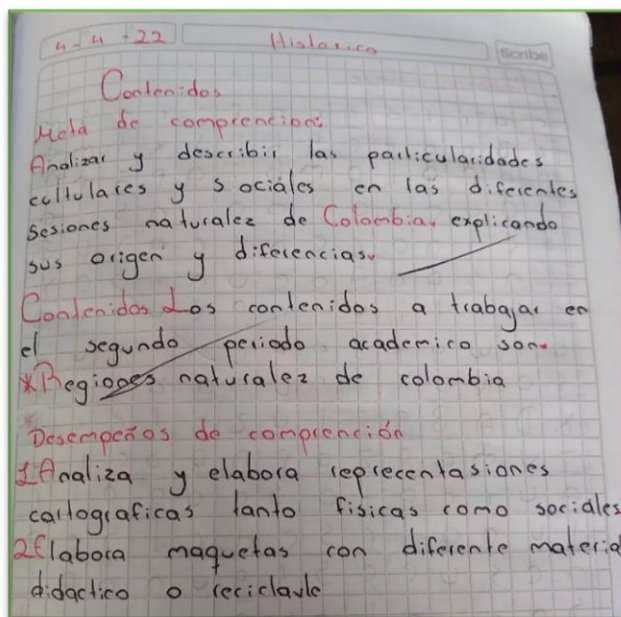 4-4-22 Historico
Scribe
Contenidos
Meta de comprencion:
Analizar y describir las particularidades
cultulares y sociales en las diferentes
sesiones naturalez de Colombia, explicando
sus origen y diferencias.
Contenidos Los contenidos a trabajar en
el segundo periodo academico son.
*Regiones naturalez de colombia
Desempeños de comprención
1Analiza y elabora reprecentasiones
cartograficas tanto fisicas como sociales
2Elabora maquetas con diferente materia
didactico o reciclavle